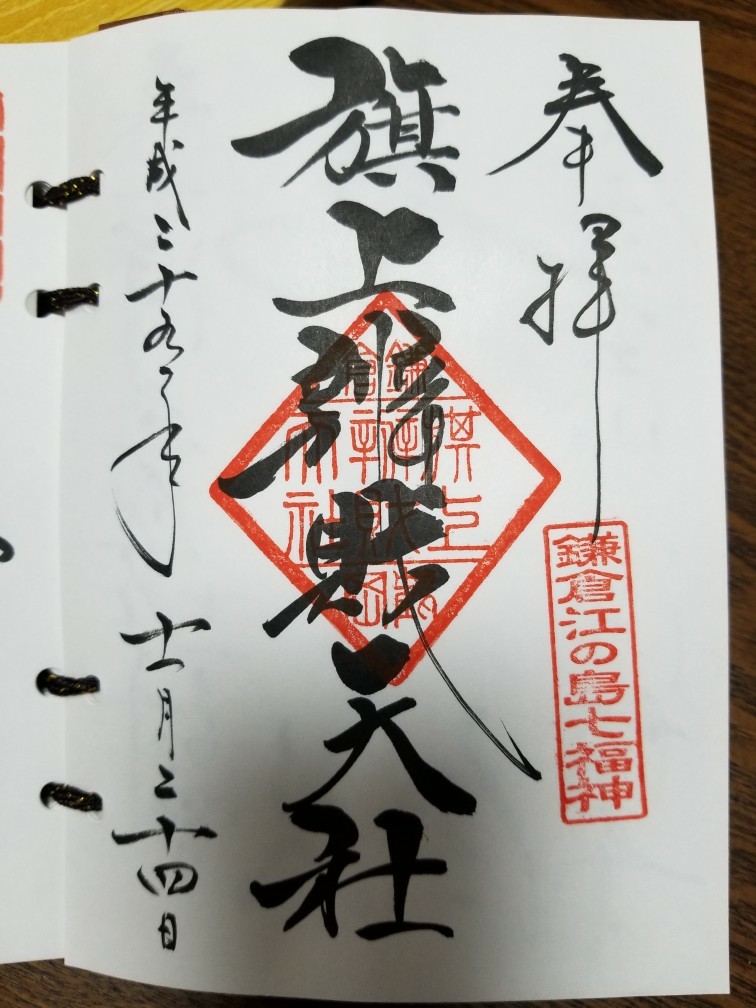 奉拝
鎌倉江の島七福神
旗上辨財天社
平成二十九年 十一月二十四日